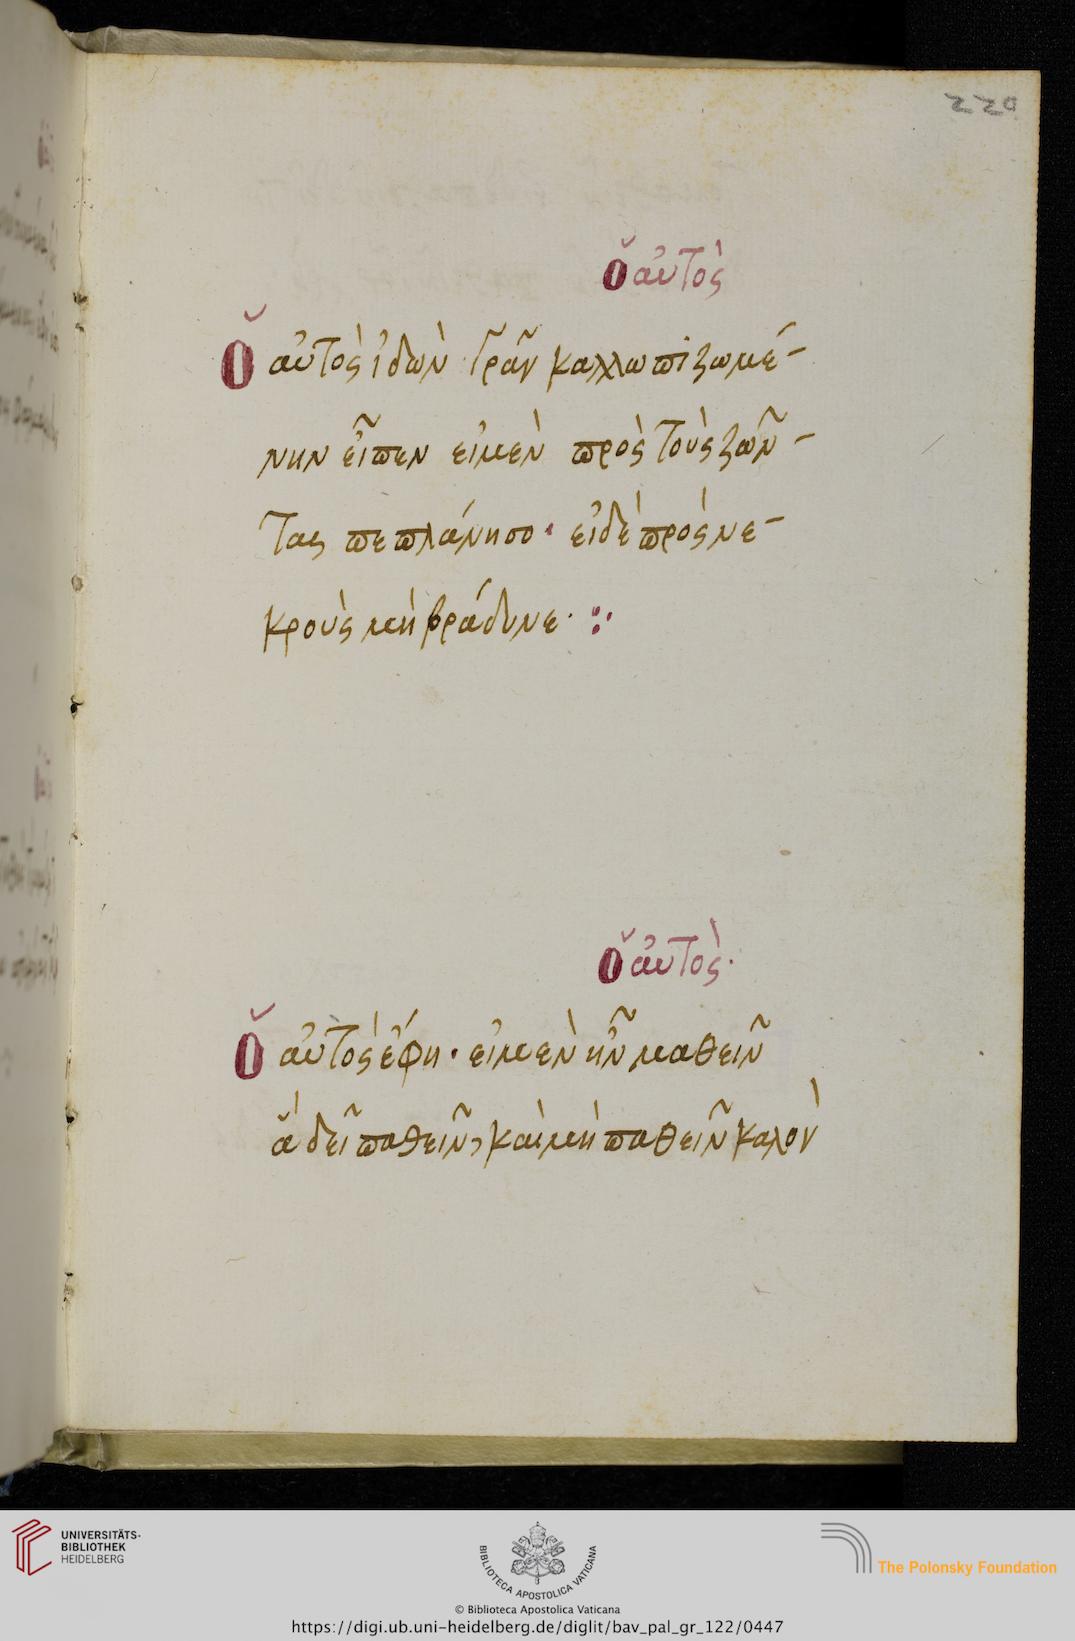 220
Ὁ αὐτὸς
Ὁ αὐτὸς ἰδὼν γρᾶν καλλωπιζωμέ-
νην εἶπεν εἰ μὲν πρὸς τοὺς ζῶν-
τας πεπλάνησο· εἰ δὲ πρὸς νε-
κροὺς μὴ βράδυνε· :·
Ὁ αὐτὸς·
Ὁ αὐτὸς ἔφη· εἰ μὲν ἦν μαθεῖν
ἃ δεῖ παθεῖν, καὶ μὴ παθεῖν καλὸν
UNIVERSITÄTS-
BIBLIOTHEK
HEIDELBERG
BIBLIOTECA APOSTOLICA VATICANA
© Biblioteca Apostolica Vaticana
The Polonsky Foundation
https://digi.ub.uni-heidelberg.de/diglit/bav_pal_gr_122/0447